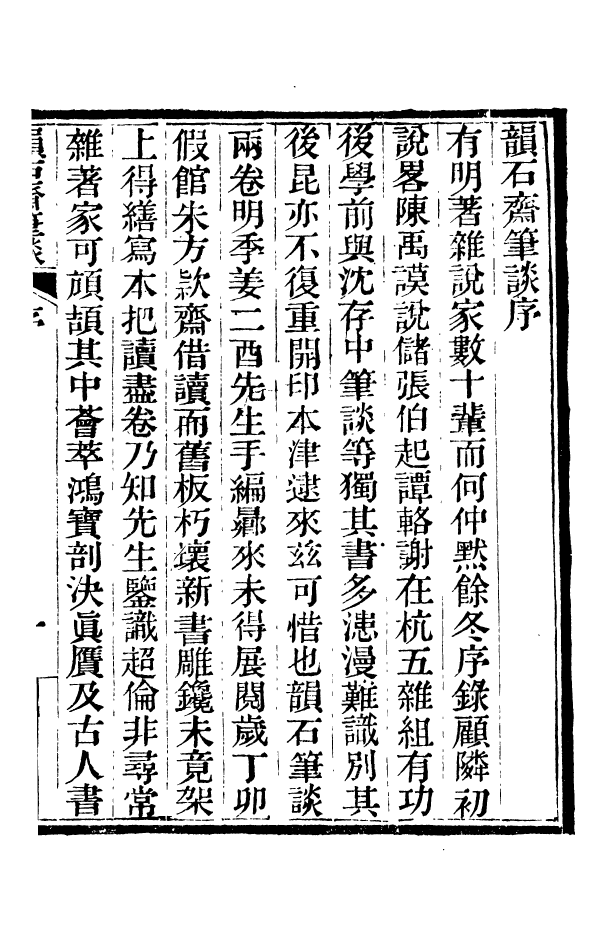 韻石齋筆談序
有明著雜說家數十輩而何仲默餘冬序錄顧隣初
說畧陳禹謨說儲張伯起譚輅謝在杭五雜組有功
後學前與沈存中筆談等獨其書多漶漫難識別其
後昆亦不復重開印本津逮來玆可惜也韻石筆談
兩卷明季姜二酉先生手編曏來未得展閱歲丁卯
假館朱方欵齋借讀而舊板朽壞新書雕鑱未竟架
上得繕寫本把讀盡卷乃知先生鑒識超倫非尋常
雜著家可頏頡其中薈萃鴻寶剖決眞贋及古人書
韻石齋筆談
序
一